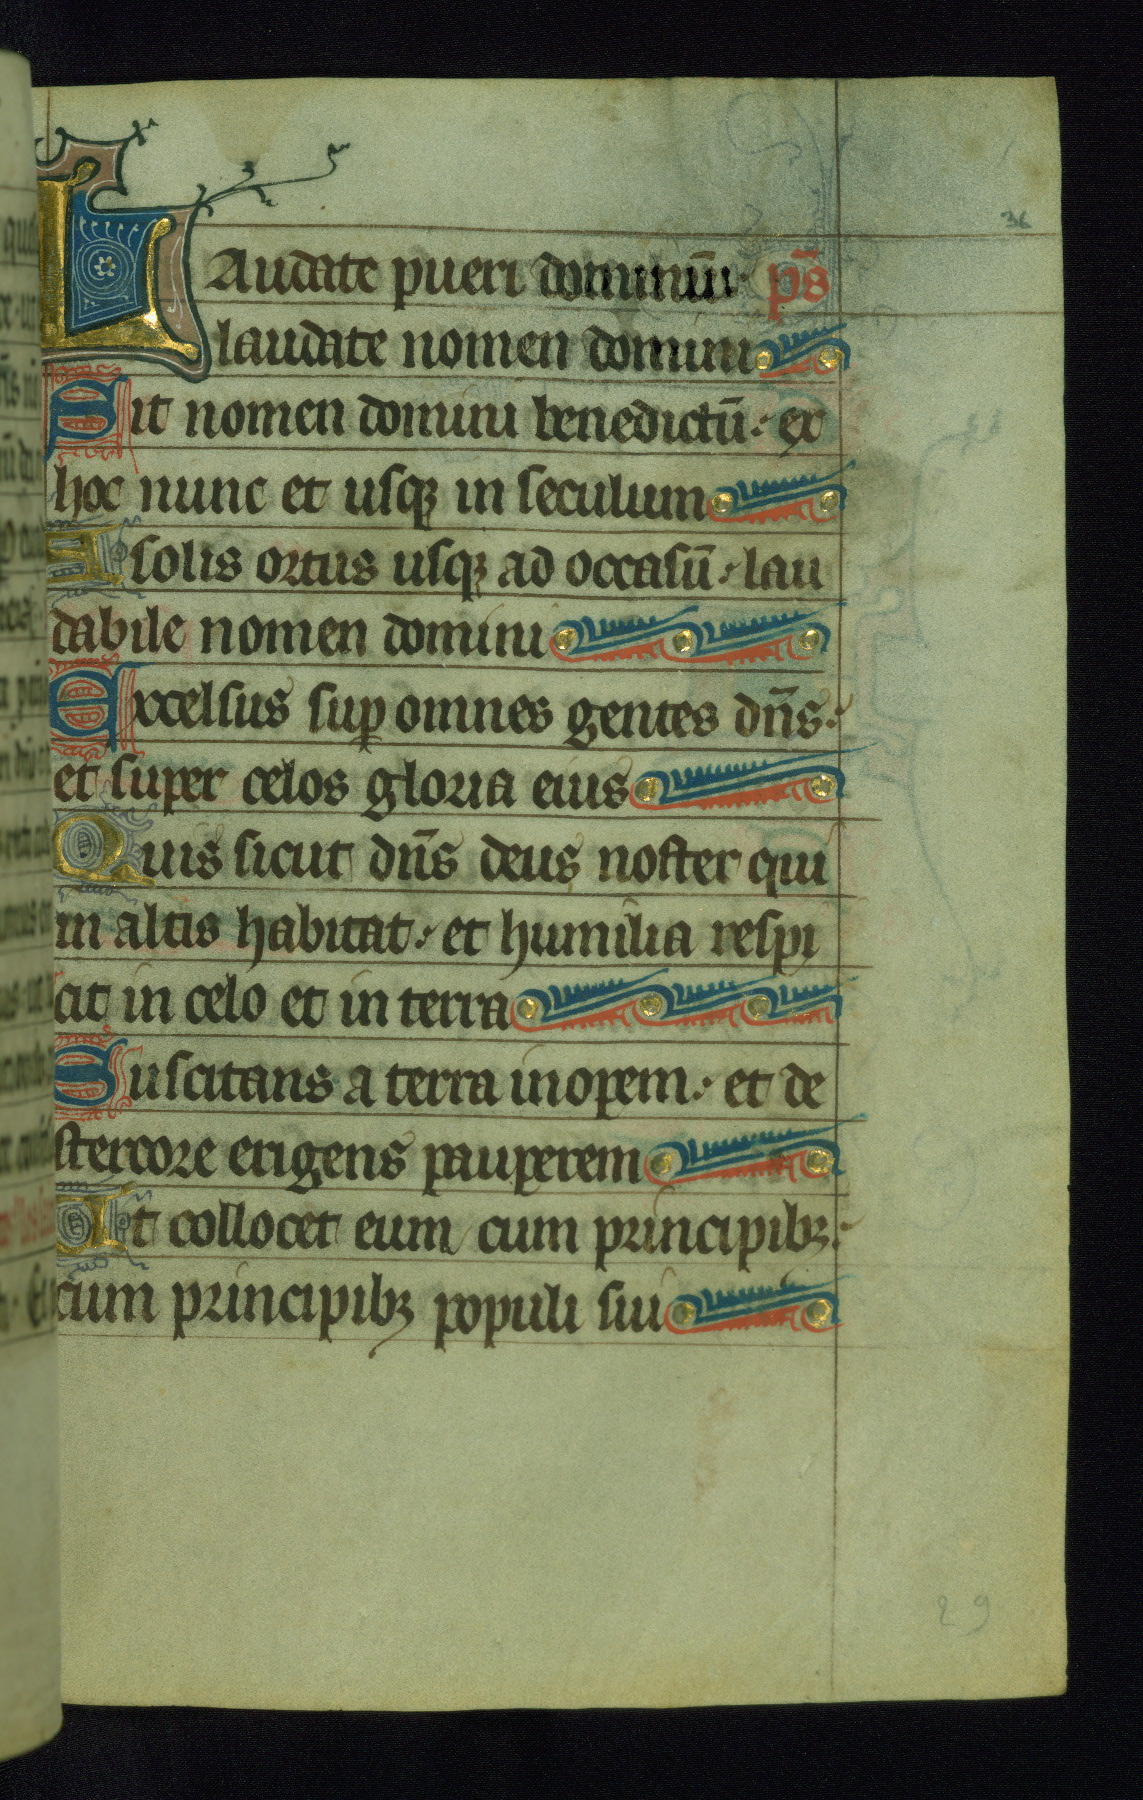 36
Laudate pueri dominū· p̄s
laudate nomen domini
Sit nomen domini benedictū· ex
hoc nunc et usqꝫ in seculum
A solis ortus usqꝫ ad occasū· lau
dabile nomen domini
Excelsus suꝑ omnes gentes dn̄s·
et super celos gloria eius
Quis sicut dn̄s deus noster qui
in altis habitat· et humilia respi
cit in celo et in terra
Suscitans a terra inopem· et de
stercore erigens pauperem
Ut collocet eum cum principibꝫ·
cum principibꝫ populi sui
29